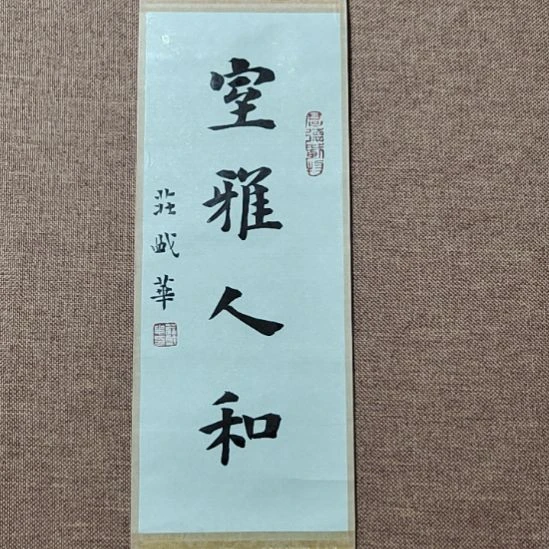 室雅人和
莊畝華